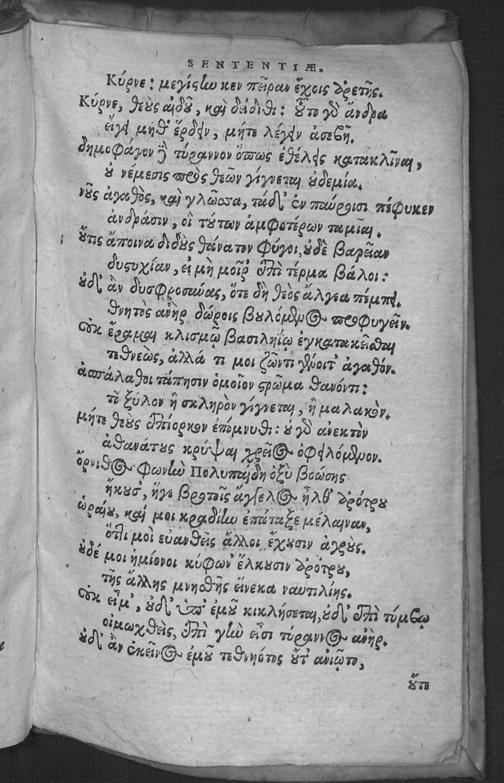 SENTENTIÆ.
Κύρνε: μεγίστίω κεν πεῖραν ἔχοις ἀρετῆς.
Κύρνε, θεὺς αἰδοῦ, καὶ δείδιθι: τοῦτο γὸ ἄνδρα
εἴργει μήθ' ἔρδειν, μήτε λέγειν ἀσεβῆ.
δημοφάγον ἢ τύραννον ὅπως ἐθέλεις κατακλῖναι,
οὐ νέμεσις πρὸς θεῶν γίγνεται οὐδεμία.
νοῦς ἀγαθὸς, καὶ γλῶσσα, τάδ' ἐν παύροισι πέφυκεν
ἀνδράσιν, οἳ τούτων ἀμφοτέρων ταμίαι.
οὔτις ἄποινα διδοὺς θάνατον φύγοι, οὐδὲ βαρεῖαν
δυστυχίαν, εἰ μὴ μοῖρ' ἐπὶ τέρμα βάλοι:
οὐδ' ἂν δυσφροσύνας, ὅτε δὴ θεὸς ἄλγεα πέμπει.
θνητὸς ἀνὴρ δώροις βουλόμενος προφυγεῖν.
οὐκ ἔραμαι κλισμῷ βασιληΐῳ ἐγκατακεῖσθαι
τεθνεὼς, ἀλλά τι μοι ζῶντι γένοιτ' ἀγαθόν.
ἀσπάλαθοι τάπησιν ὁμοῖον στρῶμα θανόντι:
τὸ ξύλον ἢ σκληρὸν γίγνεται, ἢ μαλακόν.
μήτε θεοὺς ἐπίορκον ἐπόμνυθι: οὐ γὸ ἀνεκτὸν
ἀθανάτους κρύψαι χρεῖος ὀφειλόμενον.
ὄρνιθος φωνίω Πολυπαίδη ὀξὺ βοώσης
ἤκουσ', ἥτε βροτοῖς ἄγγελος ἦλθ' ἀρότρου
ὡραίου, καί μοι κραδίίω ἐπάταξε μέλαιναν,
ὅτι μοι εὐανθεῖς ἄλλοι ἔχουσιν ἀγρούς.
οὐδέ μοι ἡμίονοι κύφων' ἕλκουσιν ἀρότρου,
τῆς ἄλλης μνησθῆς εἵνεκα ναυτιλίης.
οὐκ εἶμ', οὐδ' ὑπ' ἐμοῦ κικλήσεται, οὐδ' ἐπὶ τύμβῳ
οἰμωχθεὶς, ἐπὶ γίω εἶσι τύραννος ἀνήρ.
οὐδ' ἂν ἐκεῖνος ἐμοῦ τεθνηότος οὔτ' ἀνιῷτο,
οὔτε